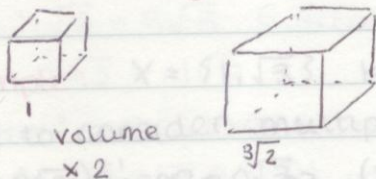 1
volume
x 2
∛2